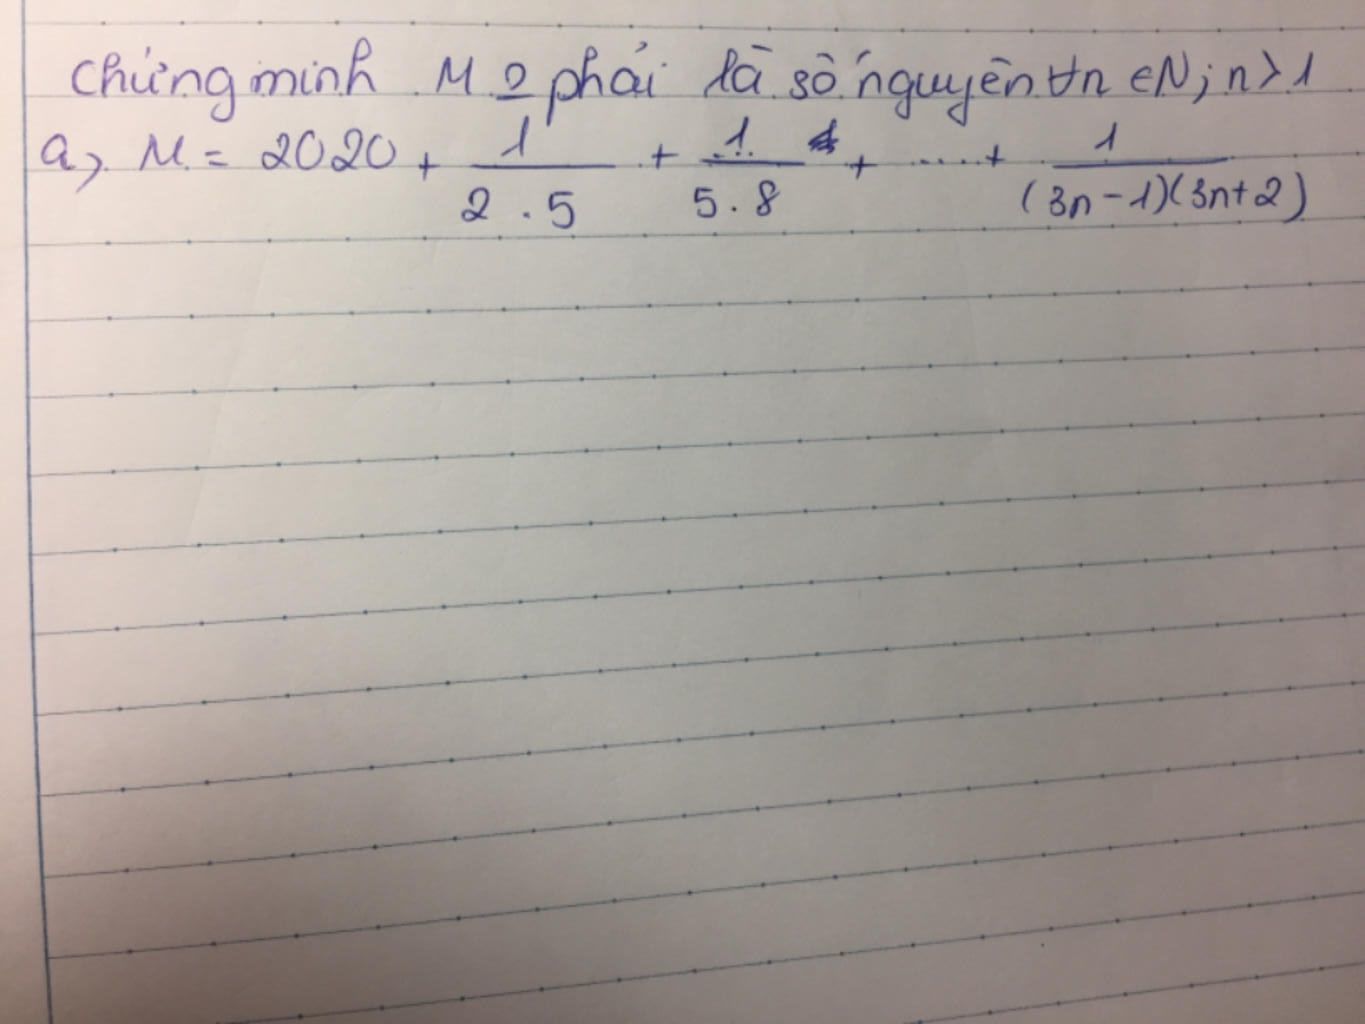 Chứng minh M o phải là số nguyên ∀n ∈ N; n > 1
a, M = 2020 + 1/(2 . 5) + 1/(5 . 8) + ..... + 1/((3n - 1)(3n + 2))